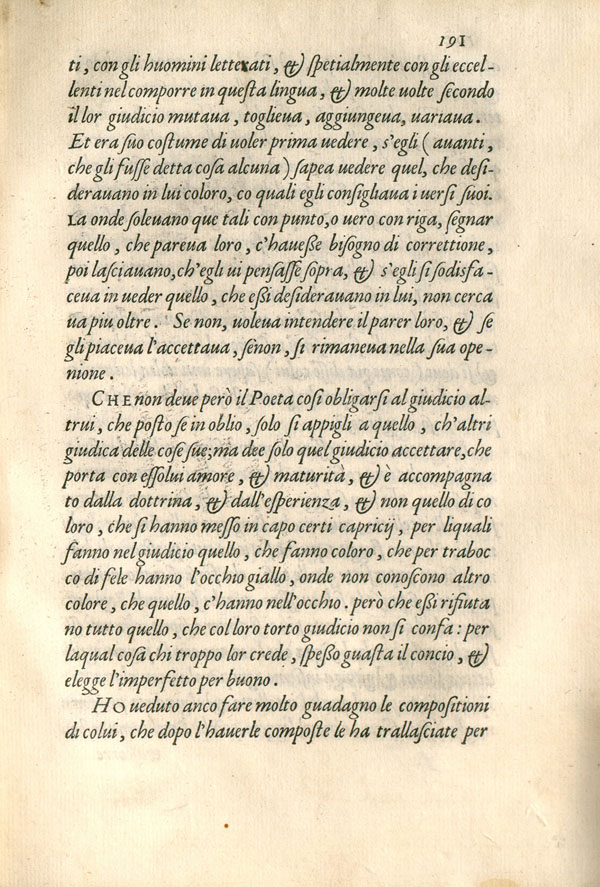 191
ti, con gli huomini letterati, & spetialmente con gli eccel-
lenti nel comporre in questa lingua, & molte uolte secondo
il lor giudicio mutaua, toglieua, aggiungeua, uariaua.
Et era suo costume di uoler prima uedere, s'egli ( auanti,
che gli fusse detta cosa alcuna ) sapea uedere quel, che desi-
derauano in lui coloro, co quali egli consigliaua i uersi suoi.
La onde soleuano que tali con punto, o uero con riga, segnar
quello, che pareua loro, c'hauesse bisogno di correttione,
poi lasciauano, ch'egli ui pensasse sopra, & s'egli si sodisfa-
ceua in ueder quello, che essi desiderauano in lui, non cerca
ua piu oltre. Se non, uoleua intendere il parer loro, & se
gli piaceua l'accettaua, senon, si rimaneua nella sua ope-
nione.
CHE non deue però il Poeta cosi obligarsi al giudicio al-
trui, che posto se in oblio, solo si appigli a quello, ch'altri
giudica delle cose sue; ma dee solo quel giudicio accettare, che
porta con essolui amore, & maturità, & è accompagna
to dalla dottrina, & dall'esperienza, & non quello di co
loro, che si hanno messo in capo certi capricij, per liquali
fanno nel giudicio quello, che fanno coloro, che per traboc
co di fele hanno l'occhio giallo, onde non conoscono altro
colore, che quello, c'hanno nell'occhio. però che essi rifiuta
no tutto quello, che col loro torto giudicio non si confa: per
laqual cosa chi troppo lor crede, spesso guasta il concio, &
elegge l'imperfetto per buono.
HO ueduto anco fare molto guadagno le compositioni
di colui, che dopo l'hauerle composte le ha trallasciate per